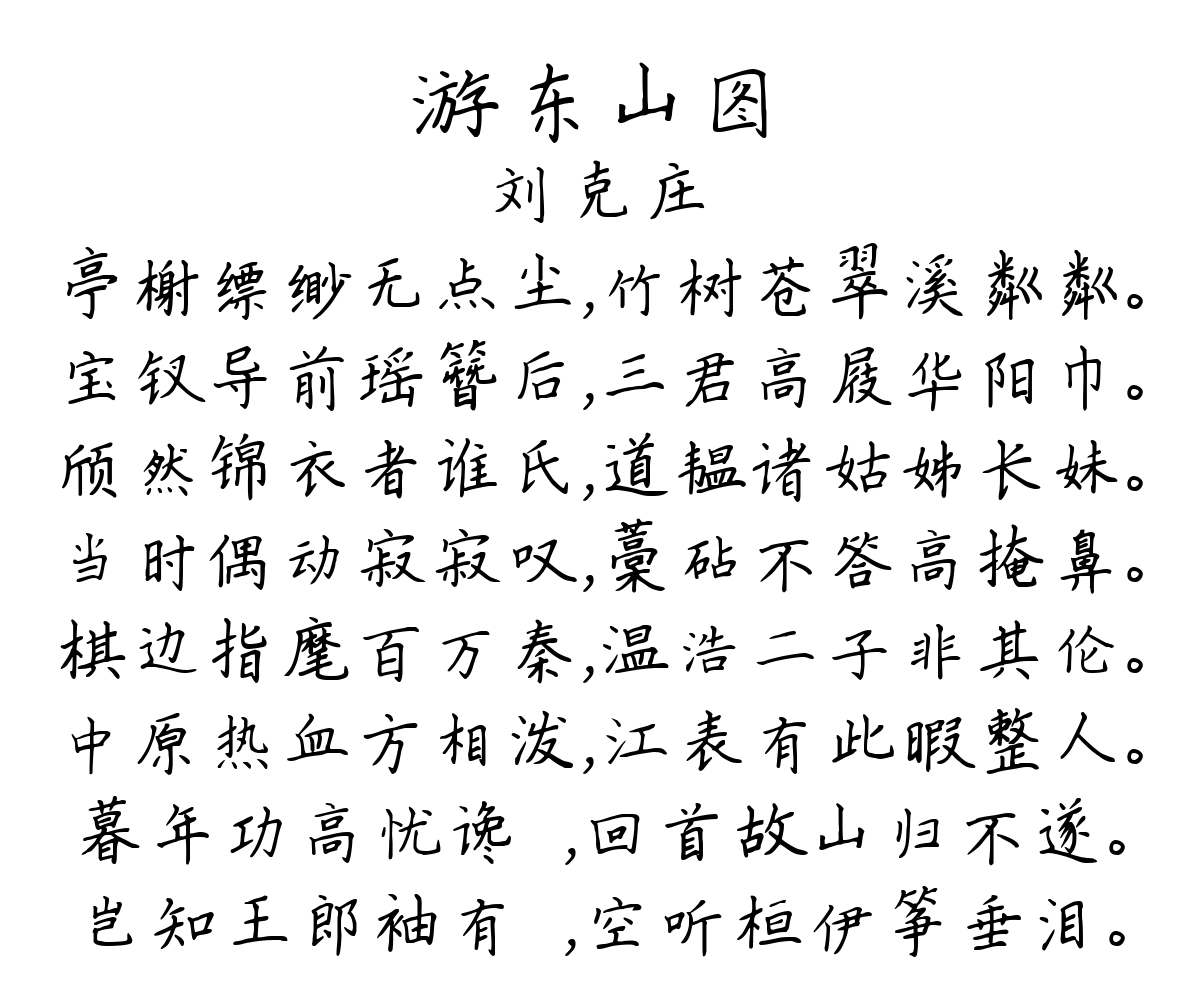 游东山图
刘克庄
亭榭缥缈无点尘,竹树苍翠溪粼粼。
宝钗导前瑶簪后,三君高屐华阳巾。
颀然锦衣者谁氏,道韫诸姑姊长妹。
当时偶动寂寂叹,藁砧不答高掩鼻。
棋边指麾百万秦,温浩二子非其伦。
中原热血方相泼,江表有此暇整人。
暮年功高忧谗 ,回首故山归不遂。
岂知王郎袖有 ,空听桓伊筝垂泪。